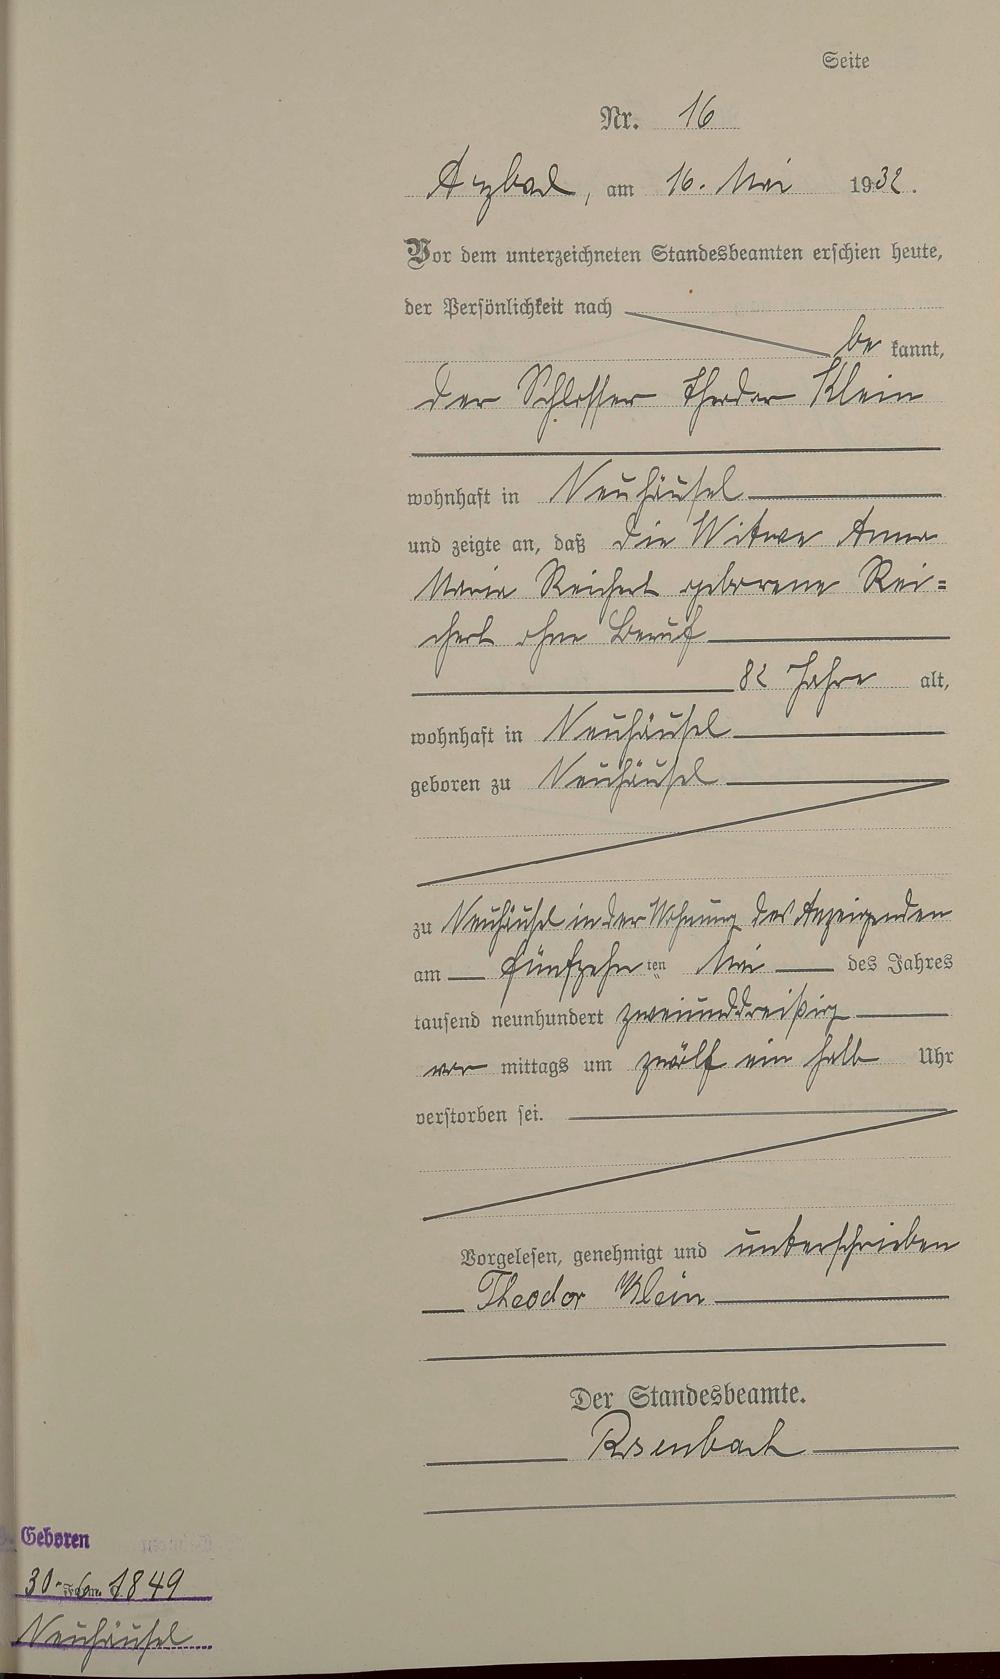 Seite
Nr. 16
Arzbach, am 16. Mai 1932.
Vor dem unterzeichneten Standesbeamten erschien heute,
der Persönlichkeit nach
be kannt,
der Schlosser Theodor Klein
wohnhaft in Neuhäusel
und zeigte an, daß die Witwe Anna
Maria Reichert geborene Rei=
chert ohne Beruf
82 Jahre alt,
wohnhaft in Neuhäusel
geboren zu Neuhäusel
zu Neuhäusel in der Wohnung des Anzeigenden
am fünfzehn ten Mai des Jahres
tausend neunhundert zweiunddreißig
vor mittags um zwölf ein halb Uhr
verstorben sei.
Vorgelesen, genehmigt und unterschrieben
Theodor Klein
Der Standesbeamte.
Geboren
30. 6. 1849
Neuhäusel